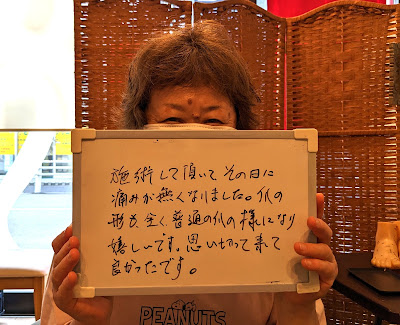 施術して頂いてその日に
痛みが無くなりました。爪の
形も全く普通の爪の様になり
嬉しいです。思い切って来て
良かったです。
PEANUTS